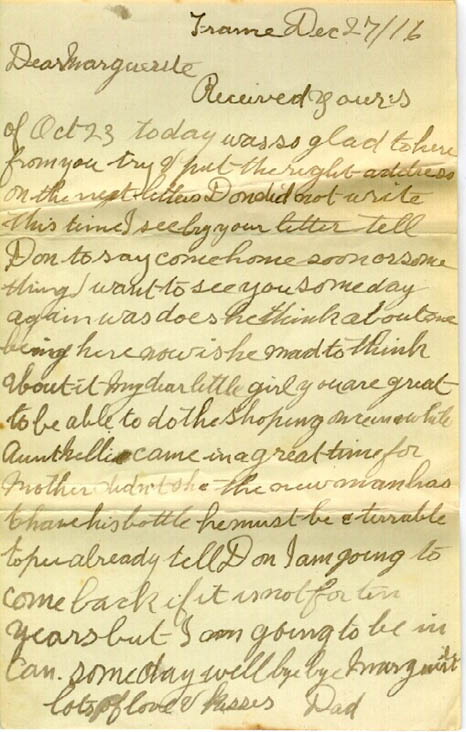 Frame Dec 27/16
Dear Marguerite
Received yours
of Oct 23 today was so glad to here
from you try & put the right address
on the next letters Don did not write
this time I see by your letter tell
Don to say come home soon or some
thing I want to see you some day
again was does he think about me
being here now is he mad to think
about it My dear little girl you are great
to be able to do the shoping once in a while
Aunt Nellie came in a great time for
Mother didn't she the new man has
to have his bottle he must be a terrable
already tell Don I am going to
come back if it is not for ten
years but I am going to be in
Can. some day well bye bye Marguerit
lots of love & kisses Dad